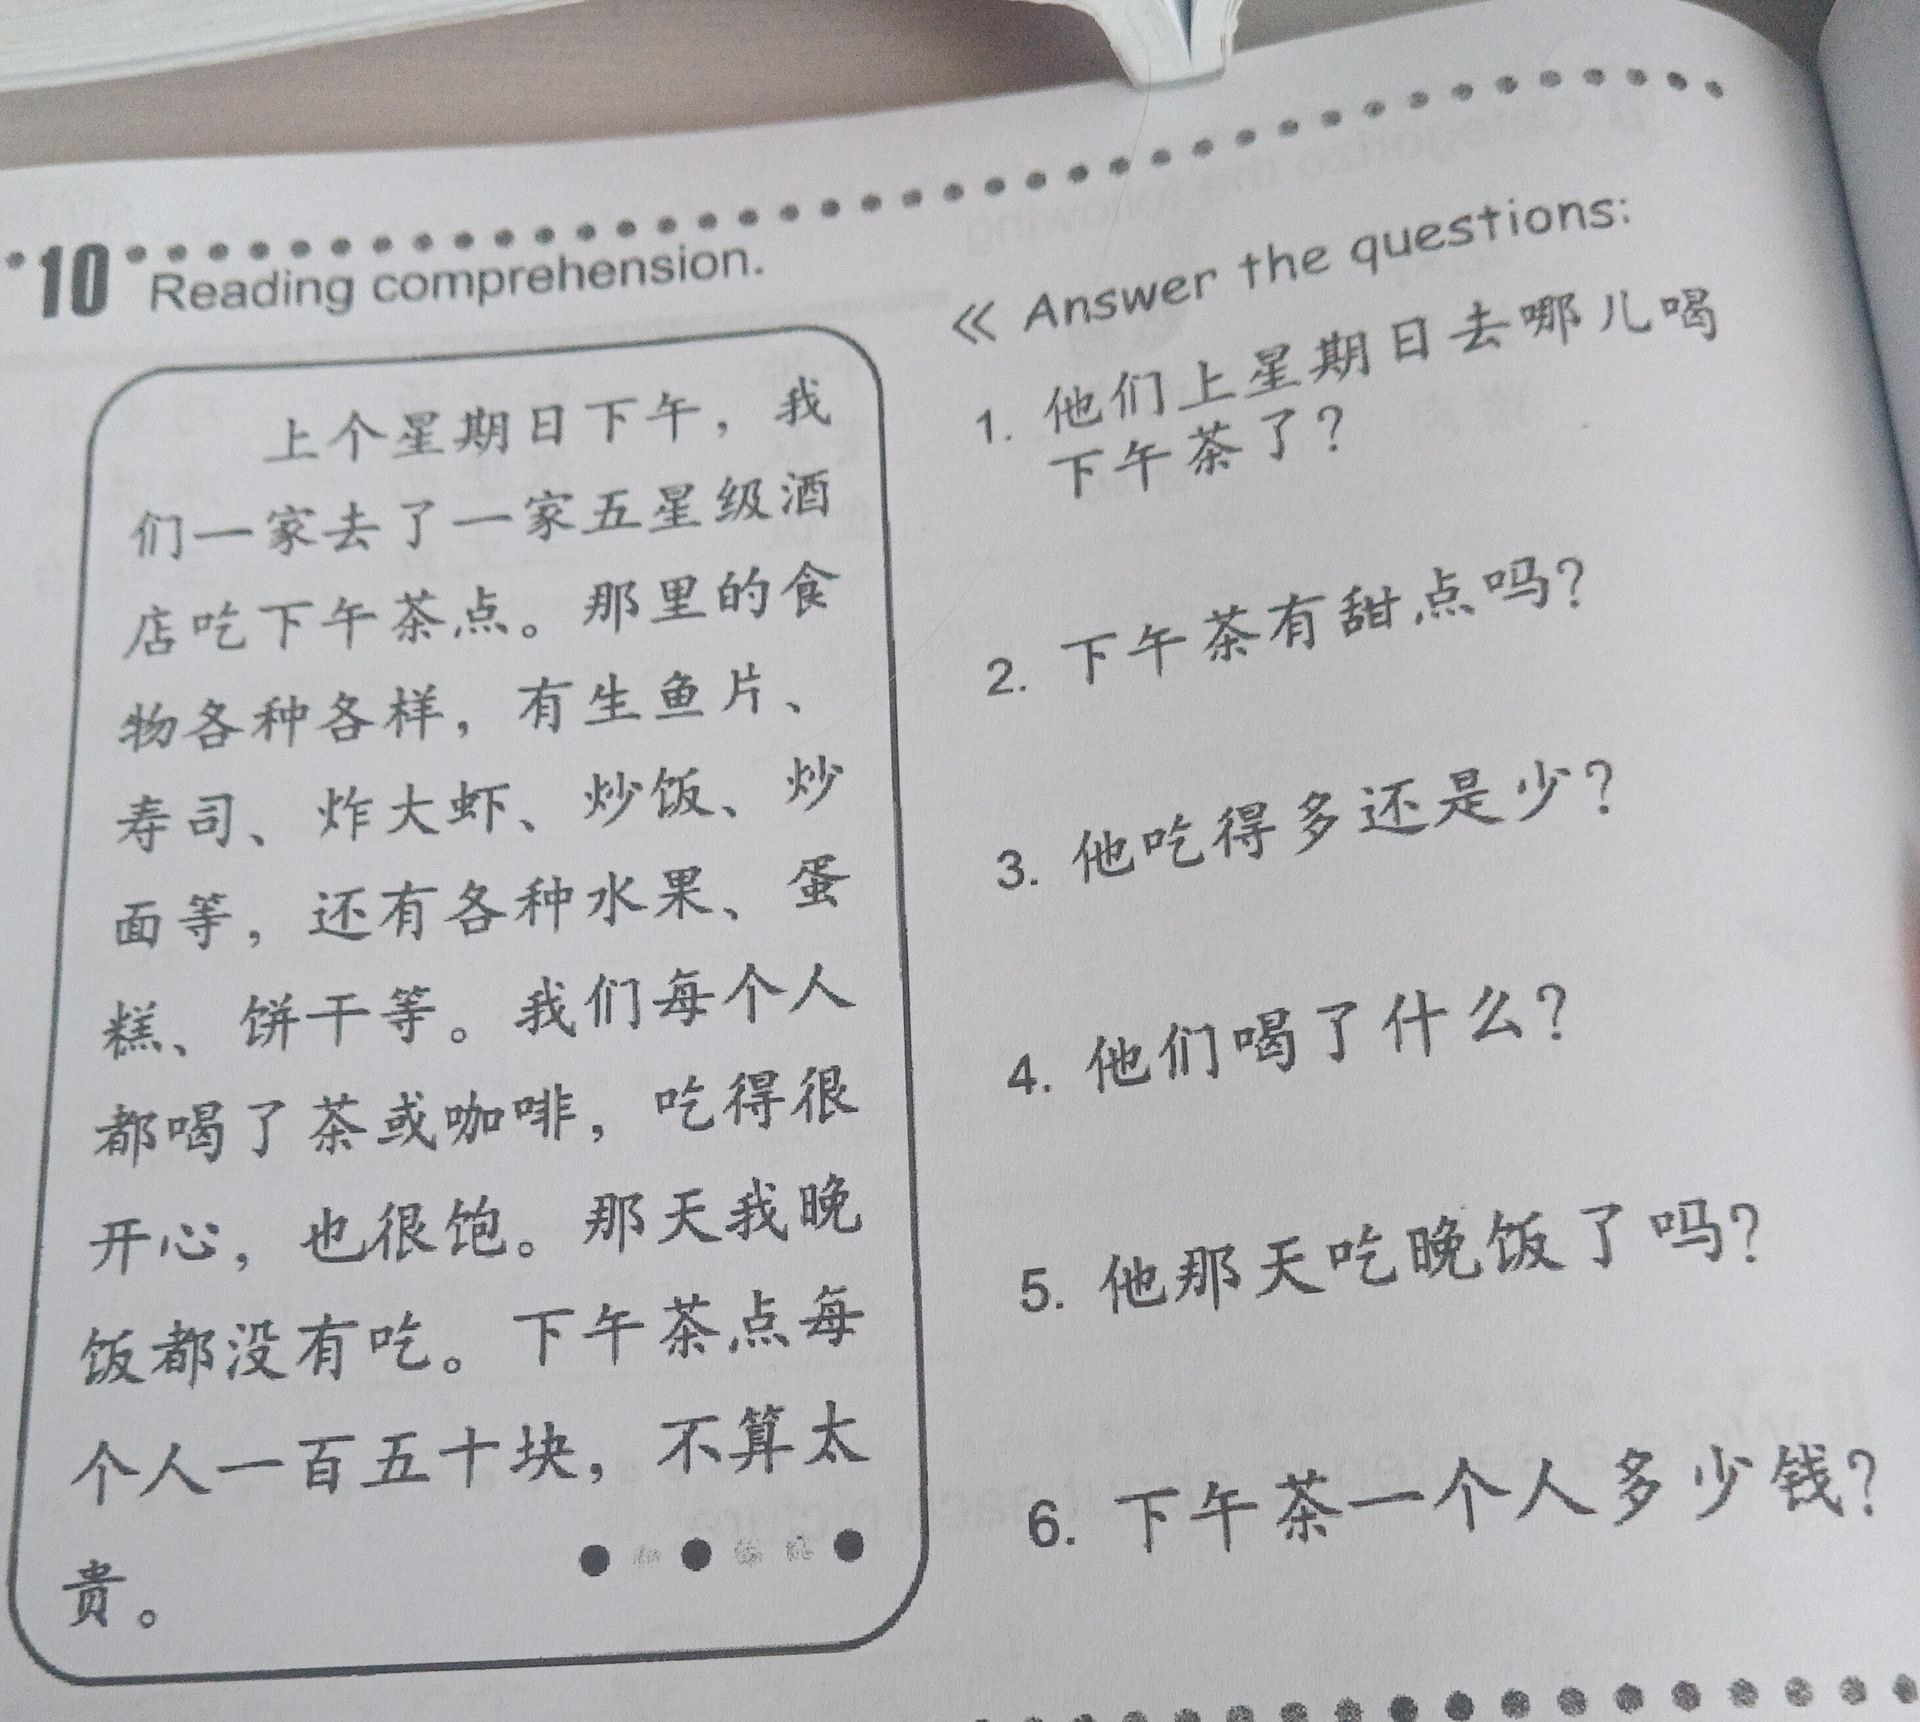 10 Reading comprehension.
上个星期日下午，我
们一家去了一家五星级酒
店吃下午茶点。那里的食
物各种各样，有生鱼片、
寿司、炸大虾、炒饭、炒
面等，还有各种水果、蛋
糕、饼干等。我们每个人
都喝了茶或咖啡，吃得很
开心，也很饱。那天我晚
饭都没有吃。下午茶点每
个人一百五十块，不算太
贵。
« Answer the questions:
1. 他们上星期日去哪儿喝
下午茶了？
2. 下午茶有甜点吗？
3. 他吃得多还是少？
4. 他们喝了什么？
5. 他那天吃晚饭了吗？
6. 下午茶一个人多少钱？